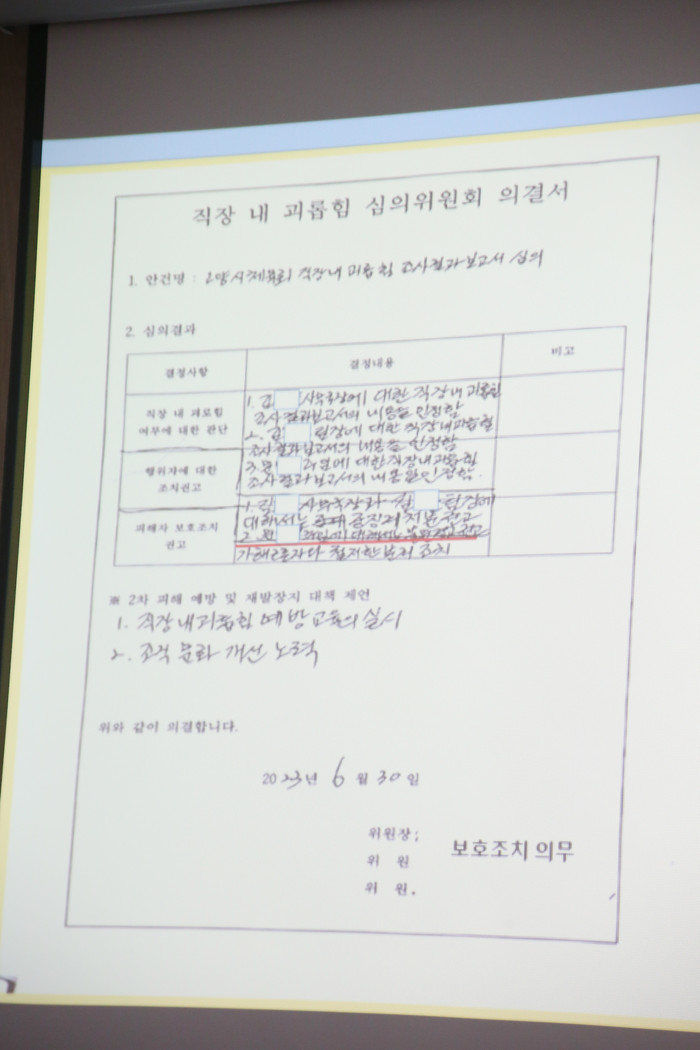 직장 내 괴롭힘 심의위원회 의결서
1. 안건명 : 고양시체육회 직장내 괴롭힘 조사결과보고서 심의
2. 심의결과
결정사항 결정내용 비고
직장 내 괴롭힘
여부에 대한 판단
1. 김 사무국장에 대한 직장내 괴롭힘
조사결과보고서의 내용을 인정함
2. 김 팀장에 대한 직장내괴롭힘
조사결과보고서의 내용을 인정함
3. 문 과장에 대한 직장내괴롭힘
조사결과보고서의 내용을 인정함.
행위자에 대한
조치권고
1. 김 사무국장과 팀장에
대해서는
2.
피해자 보호조치
권고
가해근로자와 철저한 분리 조치
※ 2차 피해 예방 및 재발방지 대책 제언
1. 직장내괴롭힘 예방교육의 실시
2. 조직 문화 개선 노력
위와 같이 의결합니다.
2023년 6월 30일
위원장;
위 원
위 원.
보호조치 의무